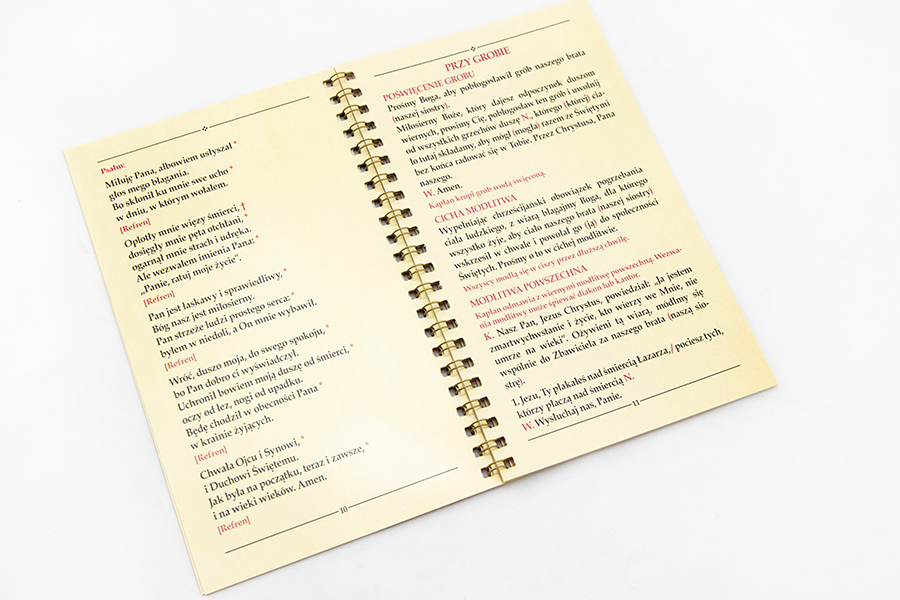 Psalm:
Miłuję Pana, albowiem usłyszał *
głos mego błagania.
Bo skłonił ku mnie swe ucho *
w dniu, w którym wołałem.
[Refren]
Oplotły mnie więzy śmierci, †
dosięgły mnie pęta otchłani, *
ogarnął mnie strach i udręka.
Ale wezwałem imienia Pana: *
„Panie, ratuj moje życie”.
[Refren]
Pan jest łaskawy i sprawiedliwy, *
Bóg nasz jest miłosierny.
Pan strzeże ludzi prostego serca: *
byłem w niedoli, a On mnie wybawił.
[Refren]
Wróć, duszo moja, do swego spokoju, *
bo Pan dobro ci wyświadczył.
Uchronił bowiem moją duszę od śmierci, *
oczy od łez, nogi od upadku.
Będę chodził w obecności Pana *
w krainie żyjących.
[Refren]
Chwała Ojcu i Synowi, *
i Duchowi Świętemu.
Jak była na początku, teraz i zawsze, *
i na wieki wieków. Amen.
[Refren]
10
PRZY GROBIE
POŚWIĘCENIE GROBU
Prośmy Boga, aby pobłogosławił grób naszego brata
(naszej siostry).
Miłosierny Boże, który dajesz odpoczynek duszom
wiernych, prosimy Cię, pobłogosław ten grób i uwolnij
od wszystkich grzechów duszę N., którego (której) cia-
ło tutaj składamy, aby mógł (mogła) razem ze Świętymi
bez końca radować się w Tobie. Przez Chrystusa, Pana
naszego.
W. Amen.
Kapłan kropi grób wodą święconą.
CICHA MODLITWA
Wypełniając chrześcijański obowiązek pogrzebania
ciała ludzkiego, z wiarą błagajmy Boga, dla którego
wszystko żyje, aby ciało naszego brata (naszej siostry)
wskrzesił w chwale i powołał go (ją) do społeczności
Świętych. Prośmy o to w cichej modlitwie.
Wszyscy modlą się w ciszy przez dłuższą chwilę.
MODLITWA POWSZECHNA
Kapłan odmawia z wiernymi modlitwę powszechną. Wezwa-
nia modlitwy może śpiewać diakon lub kantor.
K. Nasz Pan, Jezus Chrystus, powiedział: „Ja jestem
zmartwychwstanie i życie, kto wierzy we Mnie, nie
umrze na wieki”. Ożywieni tą wiarą, módlmy się
wspólnie do Zbawiciela za naszego brata (naszą sio-
strę).
1. Jezu, Ty płakałeś nad śmiercią Łazarza, / pociesz tych,
którzy płaczą nad śmiercią N.
W. Wysłuchaj nas, Panie.
11